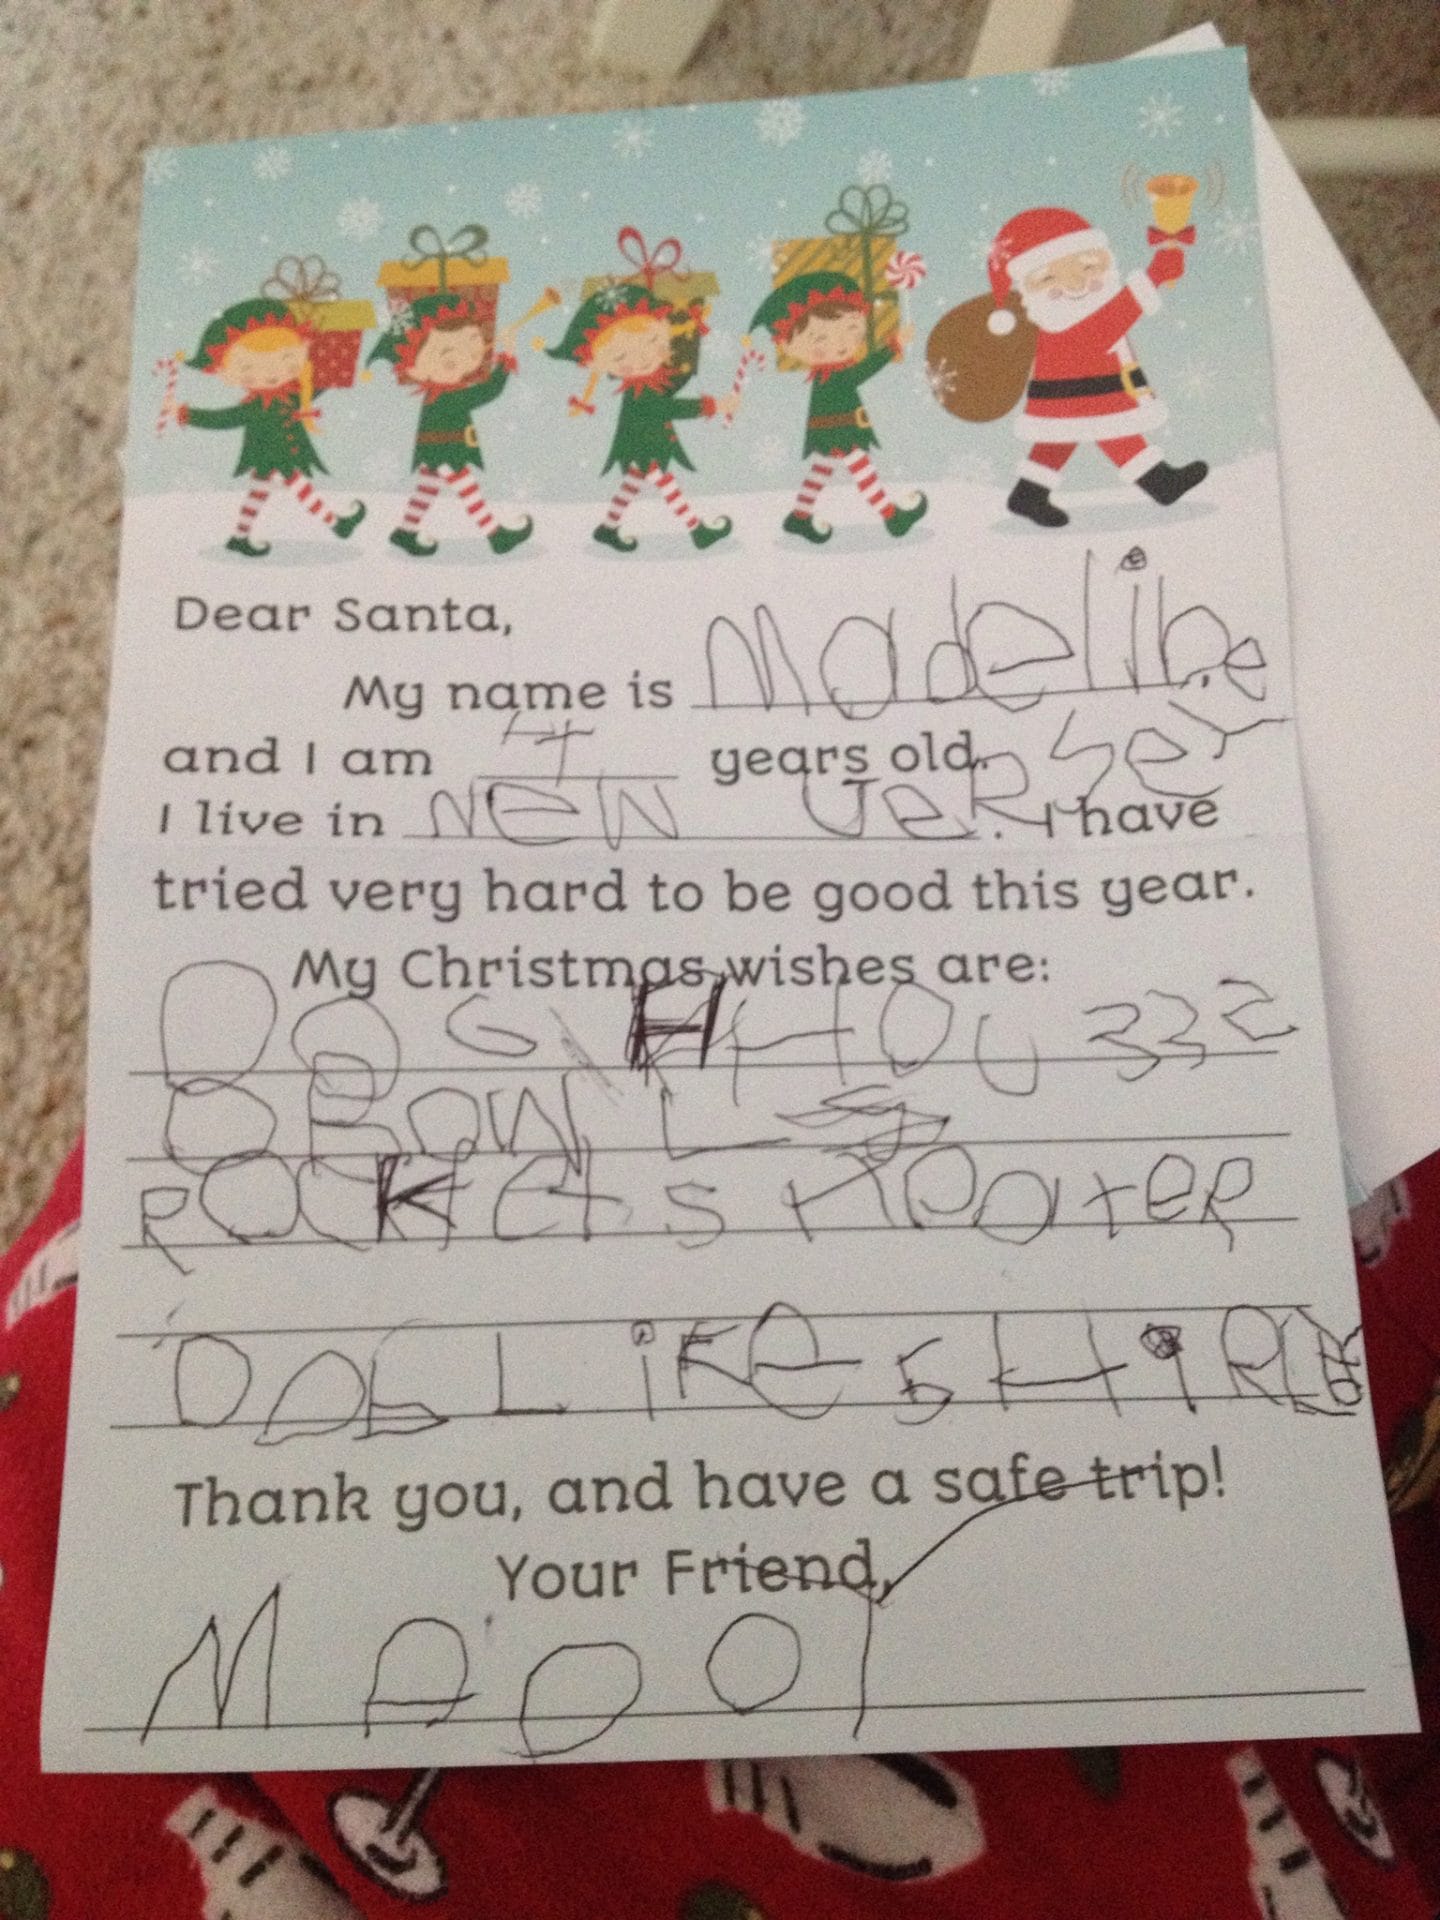 Dear Santa,
My name is Madeline
and I am 4 years old.
I live in New Jersey. I have
tried very hard to be good this year.
My Christmas wishes are:
DOG HOU
BOWL
ROCKET SHOOTER
DOG LIKE SHIR
Thank you, and have a safe trip!
Your Friend,
MADDY